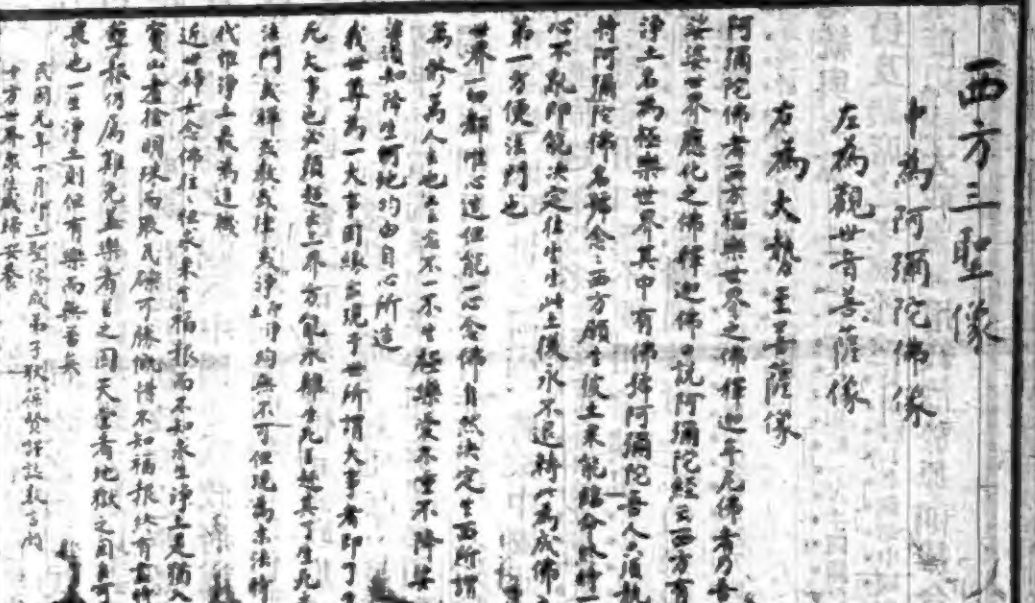 西方三聖像
中為阿彌陀佛像
左為觀世音菩薩像
右為大勢至菩薩像
阿彌陀佛者西方極樂世界之佛釋迦牟尼佛者乃吾
娑婆世界應化之佛釋迦佛說阿彌陀經云西方有
淨土名為極樂世界其中有佛號阿彌陀吾人須執
持阿彌陀佛名號念西方願生彼土果能臨命終時一
心不亂即能決定往生生此土後永不退轉此為成佛
第一方便法門也
世界一切都唯心造但能一心念佛自然決定生西所謂
為修為人主也生不一不生極樂愛不重不降娑
婆須知降生何地均由自心所造
我世尊為一大事因緣出現于世所謂大事者即了
死大事也必須超出三界方能永離生死超其了生死
法門或禪或教或律或淨均無不可但現為末法時
代惟淨土最為逗機
近世婦女念佛往往但求來生福報而不知求生淨土是猶入
寶山者捨明珠而取瓦礫可勝慨惜不知福報終有盡時
孽報仍屬難免蓋樂者苦之因天堂者地獄之因自可
畏也一生淨土則但有樂而無苦矣
民國元年十月印三聖像成弟子狄葆賢謹誌數言閱
十方世界眾生咸歸安養